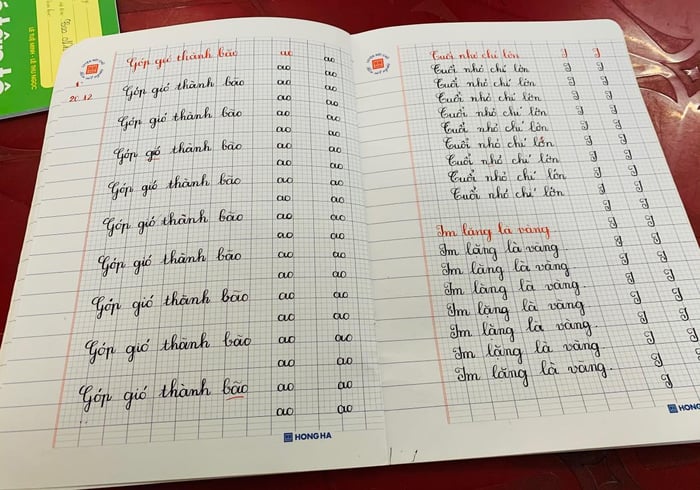 LÊ TUỆ MINH - LÊ THU NGỌC
20.12
Góp gió thành bão ao ao
Góp gió thành bão ao ao
ao ao
Góp gió thành bão ao ao
ao ao
Góp gió thành bão ao ao
ao ao
Góp gió thành bão ao ao
ao ao
Góp gió thành bão ao ao
ao ao
Góp gió thành bão ao ao
ao ao
Góp gió thành bão ao ao
ao ao
Góp gió thành bão ao ao
ao ao
Góp gió thành bão ao ao
ao ao
HONG HA
Tuổi nhỏ chí lớn I I
Tuổi nhỏ chí lớn I I
Tuổi nhỏ chí lớn I I
Tuổi nhỏ chí lớn I I
Tuổi nhỏ chí lớn I I
Tuổi nhỏ chí lớn I I
Tuổi nhỏ chí lớn I I
Tuổi nhỏ chí lớn I I
Tuổi nhỏ chí lớn I I
Tuổi nhỏ chí lớn I I
I I
I I
Im lặng là vàng I I
Im lặng là vàng. I I
Im lặng là vàng. I I
Im lặng là vàng. I I
Im lặng là vàng. I I
Im lặng là vàng. I I
Im lặng là vàng. I I
Im lặng là vàng. I
HONG HA